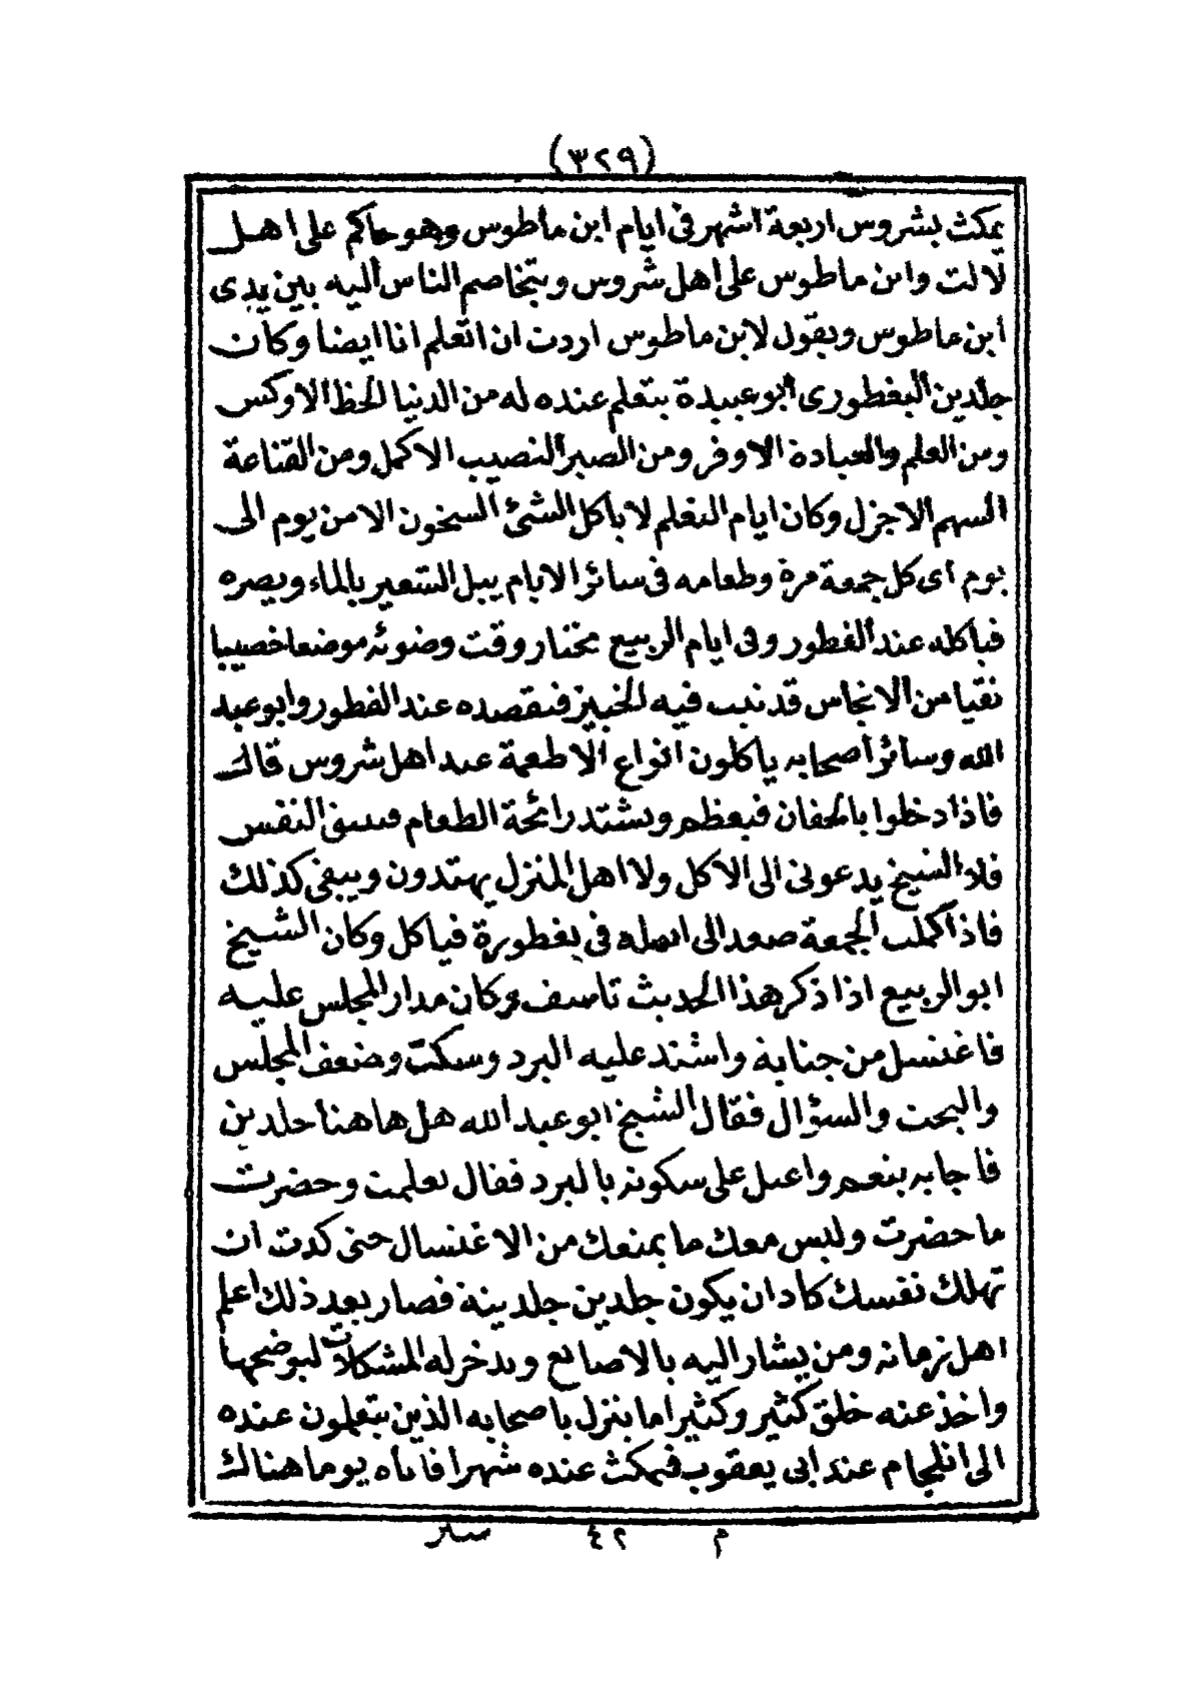 (٣٢٩)
يمكث بشروس اربعة اشهر في ايام ابن ماطوس وهو حاكم على اهل
لالت وابن ماطوس على اهل شروس ويتخاصم الناس اليه بين يدى
ابن ماطوس ويقول لابن ماطوس اردت ان اتعلم انا ايضا وكان
جلدين البغطورى ابو عبيدة يتعلم عنده له من الدنيا الحظ الاوكس
ومن العلم والعبادة الاوفر ومن الصبر النصيب الاكمل ومن القناعة
السهم الاجزل وكان ايام التعلم لا ياكل الشئ السخون الا من يوم الى
يوم اى كل جمعة مرة وطعامه فى سائر الايام يبل الشعير بالماء ويصره
فياكله عند الفطور وفى ايام الربيع يختار وقت وضوئه موضعا خصيبا
نقيا من الانجاس قد نبت فيه الخبيز فيقصده عند الفطور وابو عبد
الله وسائر اصحابه ياكلون انواع الاطعمة عند اهل شروس قال
فاذا دخلوا بالجفان فيعظم ويشتد رائحة الطعام النفس
فلا الشيخ يدعونى الى الاكل ولا اهل المنزل يهتدون ويبقى كذلك
فاذا كملت الجمعة صعد الى اهله فى بغطورة فياكل وكان الشيخ
ابو الربيع اذا ذكر هذا الحديث تاسف وكان مدار المجلس عليه
فاغتسل من جنابة واشتد عليه البرد وسكت وضعف المجلس
والبحث والسؤال فقال الشيخ ابو عبد الله هل هاهنا جلدين
فاجابه بنعم واعتل على سكوته بالبرد فقال تعلمت وحضرت
ما حضرت وليس معك ما يمنعك من الاغتسال حتى كدت ان
تهلك نفسك كاد ان يكون جلدين جلدينة فصار بعد ذلك اعلم
اهل زمانه ومن يشار اليه بالاصابع ويدخر له المشكلات ليوضحها
واخذ عنه خلق كثير وكثيرا ما ينزل باصحابه الذين يتعلمون عنده
الى اتلجام عند ابى يعقوب فيمكث عنده شهرا فاتاه يوما هنالك
م ٤٢ سير